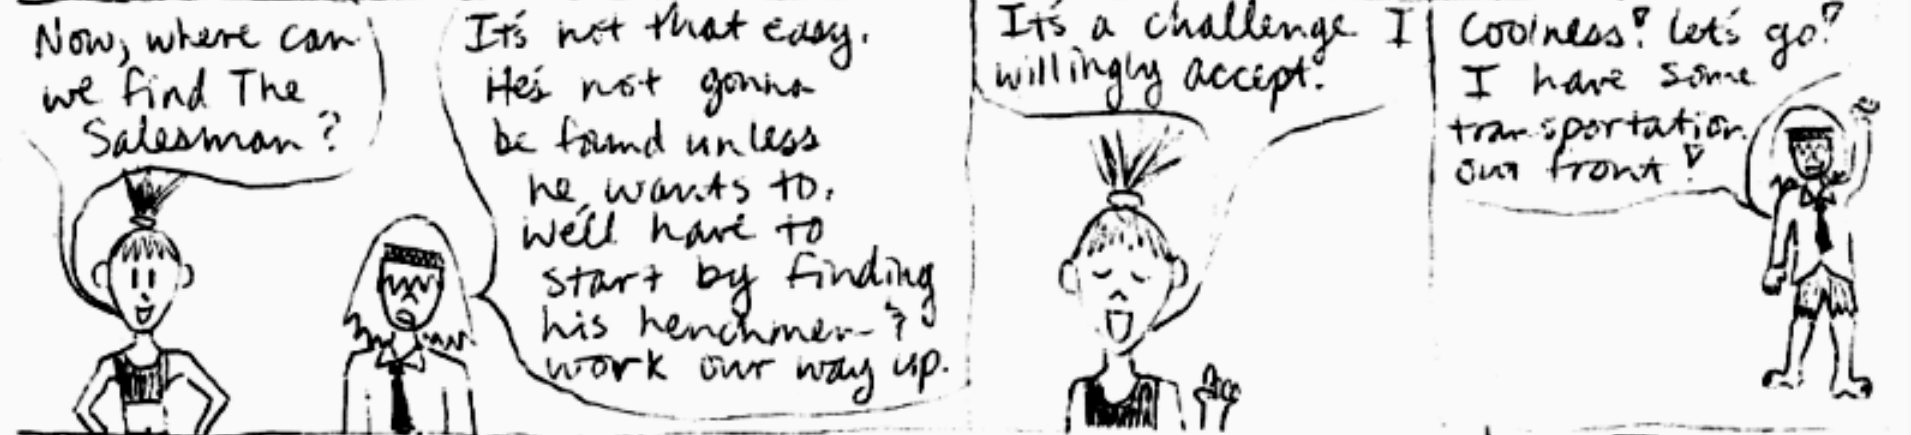 Now, where can
we find The
Salesman?
It's not that easy.
He's not gonna
be found unless
he wants to.
We'll have to
start by finding
his henchmen- &
work our way up.
It's a challenge I
willingly accept.
Coolness! Let's go!
I have some
transportation
out front!